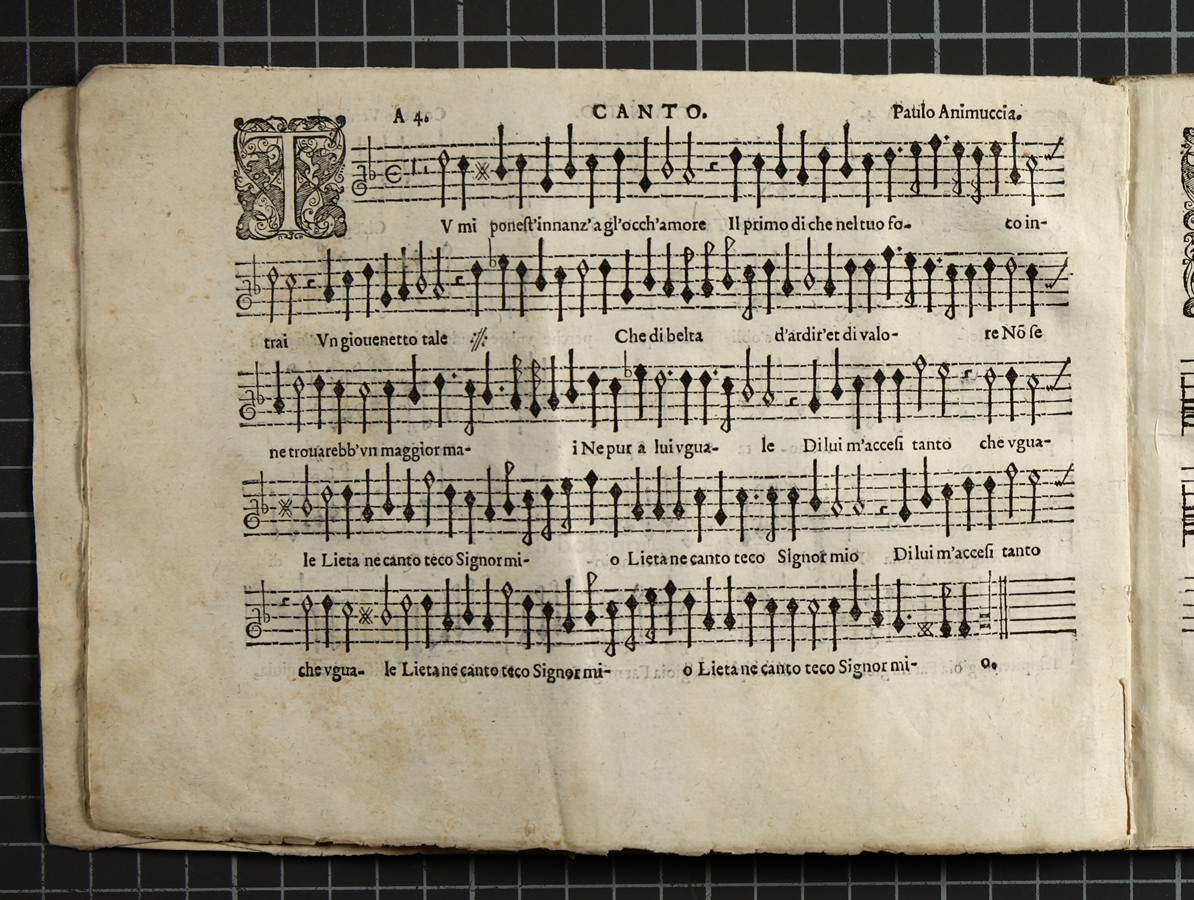 A 4. CANTO. Paulo Animuccia.
TV mi ponest'innanz' a gl'occh'amore Il primo di che nel tuo fo- co in-
trai Vn giouenetto tale :∥: Che di belta d'ardir'et di valo- re Nõ se
ne trouarebb'vn maggior ma- i Ne pur a lui vgua- le Di lui m'accesi tanto che vgua-
le Lieta ne canto teco Signor mi- o Lieta ne canto teco Signor mio Di lui m'accesi tanto
che vgua- le Lieta ne canto teco Signor mi- o Lieta ne canto teco Signor mi- o.